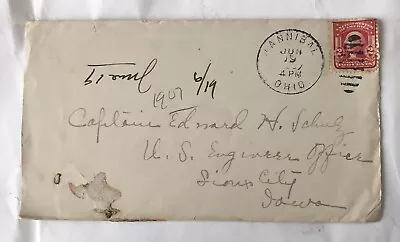 HANNIBAL
JUN
19
4 PM
OHIO
6/19
1907
Captain Edward H. Schulz
U. S. Engineer Office
Sioux City
Iowa